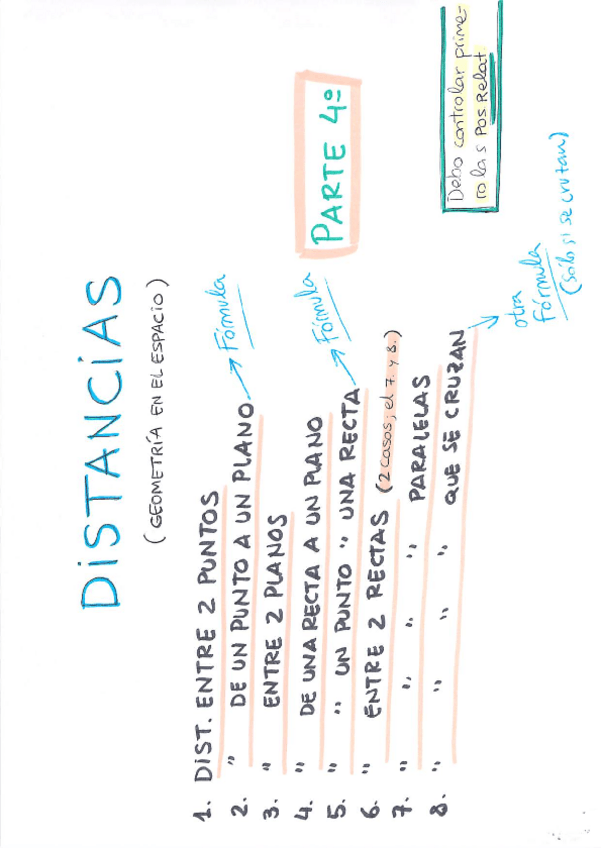 DISTANCIAS
(GEOMETRÍA EN EL ESPACIO)
PARTE 4º
Debo controlar prime-
ro las Pos Relat
1. DIST. ENTRE 2 PUNTOS
2. " DE UN PUNTO A UN PLANO → Fórmula
3. " ENTRE 2 PLANOS
4. " DE UNA RECTA A UN PLANO
5. " " UN PUNTO " UNA RECTA → Fórmula
6. " ENTRE 2 RECTAS (2 casos; el 7. y 8.)
7. " " " " PARALELAS
8. " " " " QUE SE CRUZAN
otra
Fórmula
(Sólo si se cruzan)